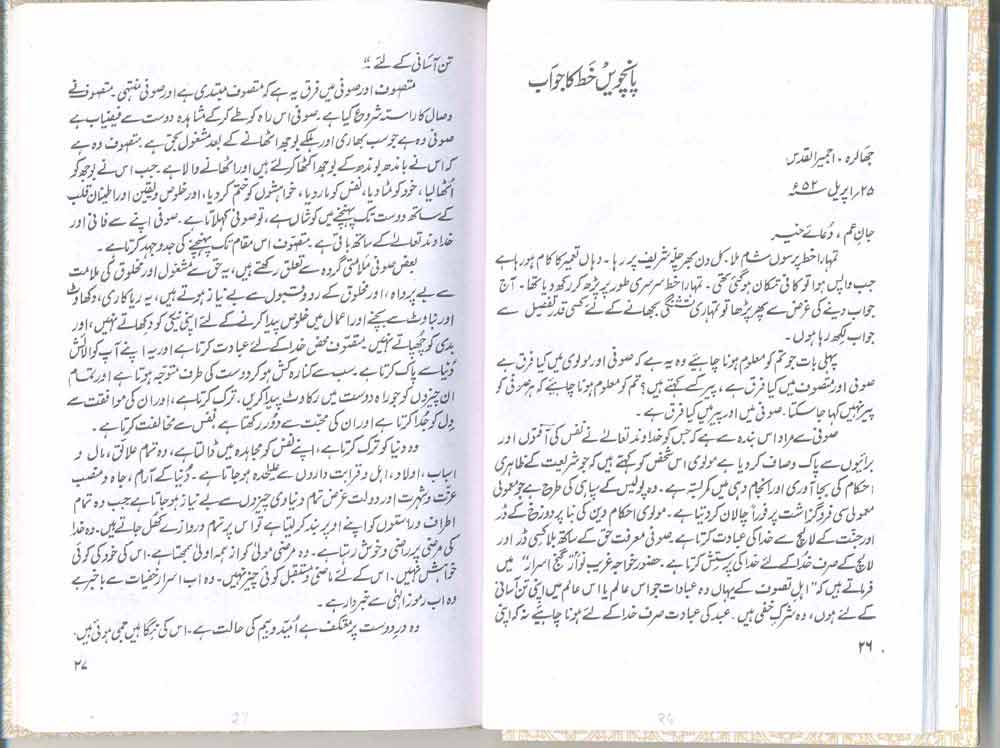 پانچویں خط کا جواب
جھالرہ ۔ اجمیر القدس
۲۵؍ اپریل ۶۵۲
جانِ عم ، دُعائے خیر
تمہارا خط پرسوں شام ملا ۔ کل دن بھر چلّہ شریف پر رہا ۔ وہاں تعمیر کا کام ہو رہا ہے
جب واپس ہوا تو کافی تکان ہو گئی تھی ۔ تمہارا خط سرسری طور پر پڑھ کر رکھ دیا تھا ۔ آج
جواب دینے کی غرض سے پھر پڑھا تو تمہاری تشنگی بجھانے کے لئے کسی قدر تفصیل سے
جواب لکھ رہا ہوں ۔
پہلی بات جو تم کو معلوم ہونا چاہئیے وہ یہ ہے کہ صوفی اور مولوی میں کیا فرق ہے
صوفی اور متصوف میں کیا فرق ہے ، پیر کسے کہتے ہیں ؟ تم کو معلوم ہونا چاہئے کہ ہر صوفی کو
پیر نہیں کہا جا سکتا ۔ صوفی میں اور پیر میں کیا فرق ہے ۔
صوفی سے مراد اس بندہ سے ہے کہ جس کو خداوند تعالےٰ نے نفس کی آفتوں اور
برائیوں سے پاک و صاف کر دیا ہے مولوی اس شخص کو کہتے ہیں کہ جو شریعت کے ظاہری
احکام کی بجا آوری اور انجام دہی میں کمربستہ ہے ۔ وہ پولیس کے سپاہی کی طرح ہے جو معمولی
معمولی سی فروگزاشت پر فوراً چالان کر دیتا ہے ۔ مولوی احکام دین کی بنا پر دوزخ کے ڈر
اور جنت کے لالچ سے خدا کی عبادت کرتا ہے صوفی معرفت حق کے ساتھ بلا کسی ڈر اور
لالچ کے صرف خدا کے لئے خدا کی پرستش کرتا ہے ۔ حضور خواجہ غریب نوازؒ "گنج اسرار" میں
فرماتے ہیں کہ "اہل تصوف کے یہاں وہ عبادات جو اس عالم یا اس عالم میں اپنی تن آسانی
کے لئے ہوں ، وہ شرک خفی ہیں ۔ عبد کی عبادت صرف خدا کے لئے ہونا چاہئیے نہ کہ اپنی
۲۶
تن آسانی کے لئے ۔"
متصوف اور صوفی میں فرق یہ ہے کہ متصوف مبتدی ہے اور صوفی منتہی ۔ متصوف نے
وصال کا راستہ شروع کیا ہے ۔ صوفی اس راہ کو طے کر کے مشاہدہ دوست سے فیضیاب ہے
صوفی وہ ہے جو سب بھاری اور ہلکے بوجھ اٹھانے کے بعد مشغول بحق ہے ۔ متصوف وہ ہے
کہ اس نے باندھ بوندھ کے بوجھ اکٹھا کر لئے ہیں اور اٹھانے والا ہے ۔ جب اس نے بوجھ کو
اُٹھا لیا ، خود کو مٹا دیا ، نفس کو مار دیا ، خواہشوں کو ختم کر دیا ، اور خلوص و یقین اور اطمینان قلب
کے ساتھ دوست تک پہنچنے میں کوشاں ہے ، تو صوفی کہلاتا ہے ۔ صوفی اپنے سے فانی اور
خداوند تعالےٰ کے ساتھ باقی ہے ۔ متصوف اس مقام تک پہنچنے کی جدوجہد کرتا ہے ۔
بعض صوفی ملامتی گروہ سے تعلق رکھتے ہیں ، یہ حق سے مشغول اور مخلوق کی ملامت
سے بے پرواہ ، اور مخلوق کے رد و قبول سے بے نیاز ہوتے ہیں ، یہ ریاکاری ، دکھاوٹ
اور بناوٹ سے بچنے اور اعمال میں خلوص پیدا کرنے کے لئے اپنی نیکی کو دکھاتے نہیں ، اور
بدی کو چھپاتے نہیں ۔ متصوف محض خدا کے لئے عبادت کرتا ہے اور یہ اپنے آپ کو آلائش
دُنیا سے پاک کرتا ہے ۔ سب سے کنارہ کش ہو کر دوست کی طرف متوجہ ہوتا ہے اور تمام
ان چیزوں کو جو راہ دوست میں رکاوٹ پیدا کریں ۔ ترک کرتا ہے ، اور ان کی موافقت سے
دل کو جُدا کرتا ہے اور ان کی محبت سے دُور رکھتا ہے نفس سے مخالفت کرتا ہے ۔
وہ دنیا کو ترک کرتا ہے ، اپنے نفس کو مجاہدہ میں ڈالتا ہے ، وہ تمام علائق ، مال و
اسباب ، اولاد ، اہل و قرابت داروں سے علیحدہ ہو جاتا ہے ۔ دُنیا کے آرام ، جاہ و منصب
عزّت و شہرت اور دولت غرض تمام دنیاوی چیزوں سے بے نیاز ہو جاتا ہے جب وہ تمام
اطراف و راستوں کو اپنے اوپر بند کر لیتا ہے تو اس پر تمام دروازے کھل جاتے ہیں ۔ وہ خدا
کی مرضی پر راضی و خوش رہتا ہے ۔ وہ مرضی مولیٰ کو از ہمہ اولیٰ سمجھتا ہے ۔ اس کی خود کی کوئی
خواہش نہیں ۔ اس کے لئے ماضی و مستقبل کوئی چیز نہیں ۔ وہ اب اسرار خفیات سے باخبر ہے
وہ اب رموز الٰہی سے خبردار ہے ۔
وہ درِ دوست پر معتکف ہے اُمید و بیم کی حالت ہے ۔ اس کی نگاہیں جمی ہوئی ہیں ۔
۲۷
26
27